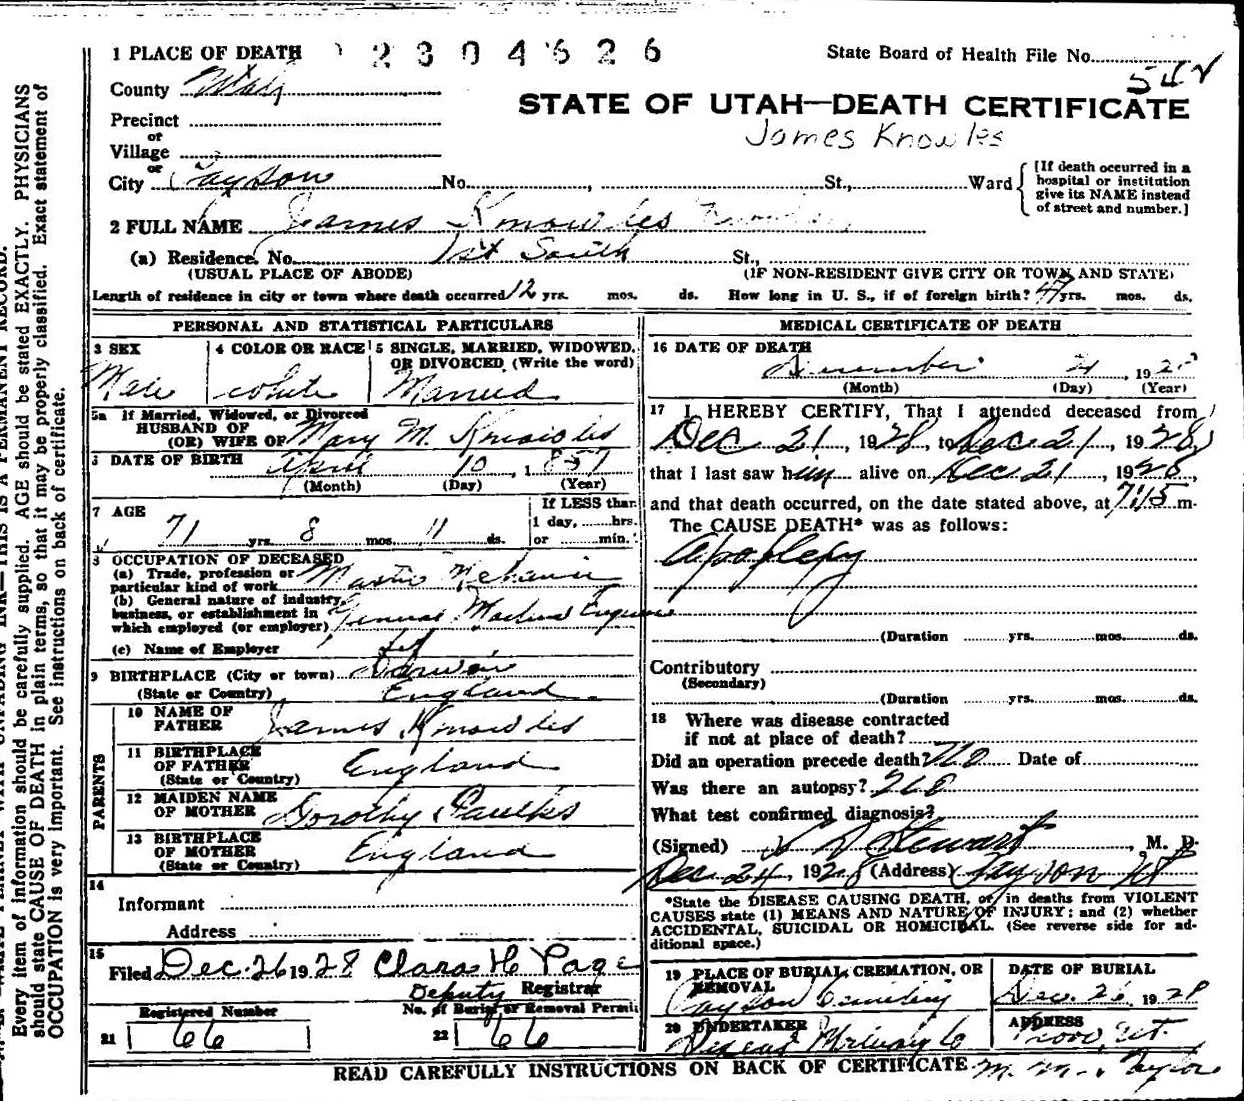 1 PLACE OF DEATH 2304626 State Board of Health File No. 542
County Utah
STATE OF UTAH—DEATH CERTIFICATE
Precinct
James Knowles
or
Village
or
City Payson No. , St., Ward
[If death occurred in a hospital or institution give its NAME instead of street and number.]
2 FULL NAME James Knowles
(a) Residence. No. 1st South St.,
(USUAL PLACE OF ABODE) (IF NON-RESIDENT GIVE CITY OR TOWN AND STATE)
Length of residence in city or town where death occurred 12 yrs. mos. ds. How long in U. S., if of foreign birth? 47 yrs. mos. ds.
PERSONAL AND STATISTICAL PARTICULARS
3 SEX 4 COLOR OR RACE 5 SINGLE, MARRIED, WIDOWED, OR DIVORCED (Write the word)
Male white Married
5a If Married, Widowed, or Divorced
HUSBAND OF
(OR) WIFE OF Mary M. Knowles
6 DATE OF BIRTH April 10, 1857
(Month) (Day) (Year)
7 AGE If LESS than
71 yrs. 8 mos. 11 ds. 1 day, hrs.
or min.
8 OCCUPATION OF DECEASED
(a) Trade, profession or
particular kind of work
(b) General nature of industry,
business, or establishment in
which employed (or employer) General
(c) Name of Employer
9 BIRTHPLACE (City or town) Darwin
(State or Country) England
PARENTS
10 NAME OF
FATHER James Knowles
11 BIRTHPLACE
OF FATHER England
(State or Country)
12 MAIDEN NAME
OF MOTHER Dorothy Faulks
13 BIRTHPLACE
OF MOTHER England
(State or Country)
14
Informant
Address
15
Filed Dec. 26 1928 Clara H Page
Deputy Registrar
Registered Number No. of Burial or Removal Permit
21 66 22 66
MEDICAL CERTIFICATE OF DEATH
16 DATE OF DEATH
December 21, 1928
(Month) (Day) (Year)
17 I HEREBY CERTIFY, That I attended deceased from
Dec 21, 1928, to Dec 21, 1928,
that I last saw him alive on Dec 21, 1928,
and that death occurred, on the date stated above, at 7:15 m.
The CAUSE DEATH* was as follows:
Apoplexy
(Duration yrs. mos. ds.
Contributory
(Secondary)
(Duration yrs. mos. ds.
18 Where was disease contracted
if not at place of death?
Did an operation precede death? no Date of
Was there an autopsy? no
What test confirmed diagnosis?
(Signed) Stewart, M. D.
Dec. 24 1928 (Address) Payson Ut
*State the DISEASE CAUSING DEATH, or, in deaths from VIOLENT
CAUSES state (1) MEANS AND NATURE OF INJURY; and (2) whether
ACCIDENTAL, SUICIDAL OR HOMICIDAL. (See reverse side for ad-
ditional space.)
19 PLACE OF BURIAL, CREMATION, OR REMOVAL DATE OF BURIAL
Payson Cemetery Dec. 26, 1928
20 UNDERTAKER ADDRESS
Deseret Mortuary Co Provo, Ut.
READ CAREFULLY INSTRUCTIONS ON BACK OF CERTIFICATE. M. M. Taylor
Every item of information should be carefully supplied. AGE should be stated EXACTLY. PHYSICIANS
should state CAUSE OF DEATH in plain terms, so that it may be properly classified. Exact statement of
OCCUPATION is very important. See instructions on back of certificate.